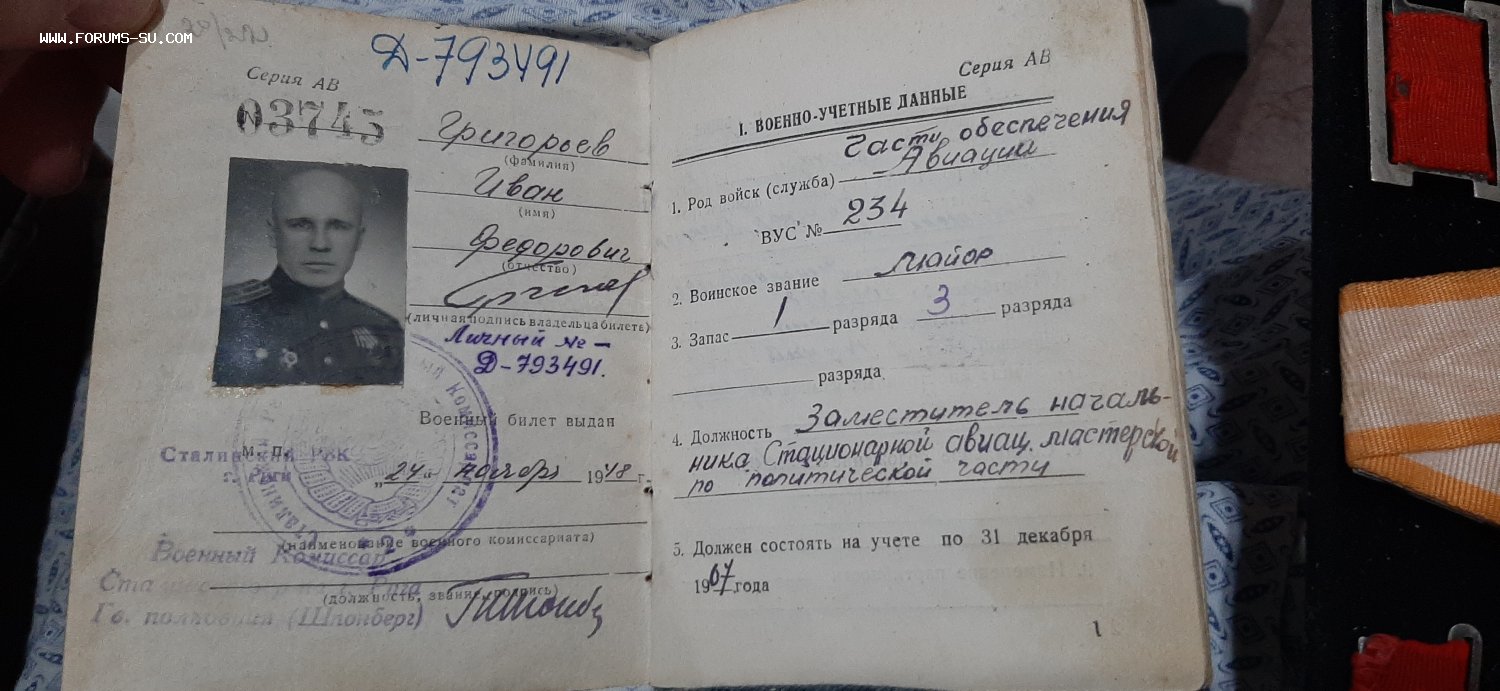 www.forums-su.com
Д-793491
Серия АВ
03745
Григорьев
(фамилия)
Иван
(имя)
Федорович
(отчество)
(личная подпись владельца билета)
Личный № –
Д-793491.
Военный билет выдан
М. П.
Сталинский РВК
г. Риги
„24“ ноября 1948 г.
(наименование военного комиссариата)
Военный Комиссар
(должность, звание, подпись)
Гв. полковник (Шпонберг)
Серия АВ
I. ВОЕННО-УЧЕТНЫЕ ДАННЫЕ
Части обеспечения
1. Род войск (служба) Авиации
ВУС № 234
2. Воинское звание майор
3. Запас 1 разряда 3 разряда
разряда
4. Должность Заместитель началь-
ника Стационарной авиац. мастерской
по политической части
5. Должен состоять на учете по 31 декабря
1967 года
1